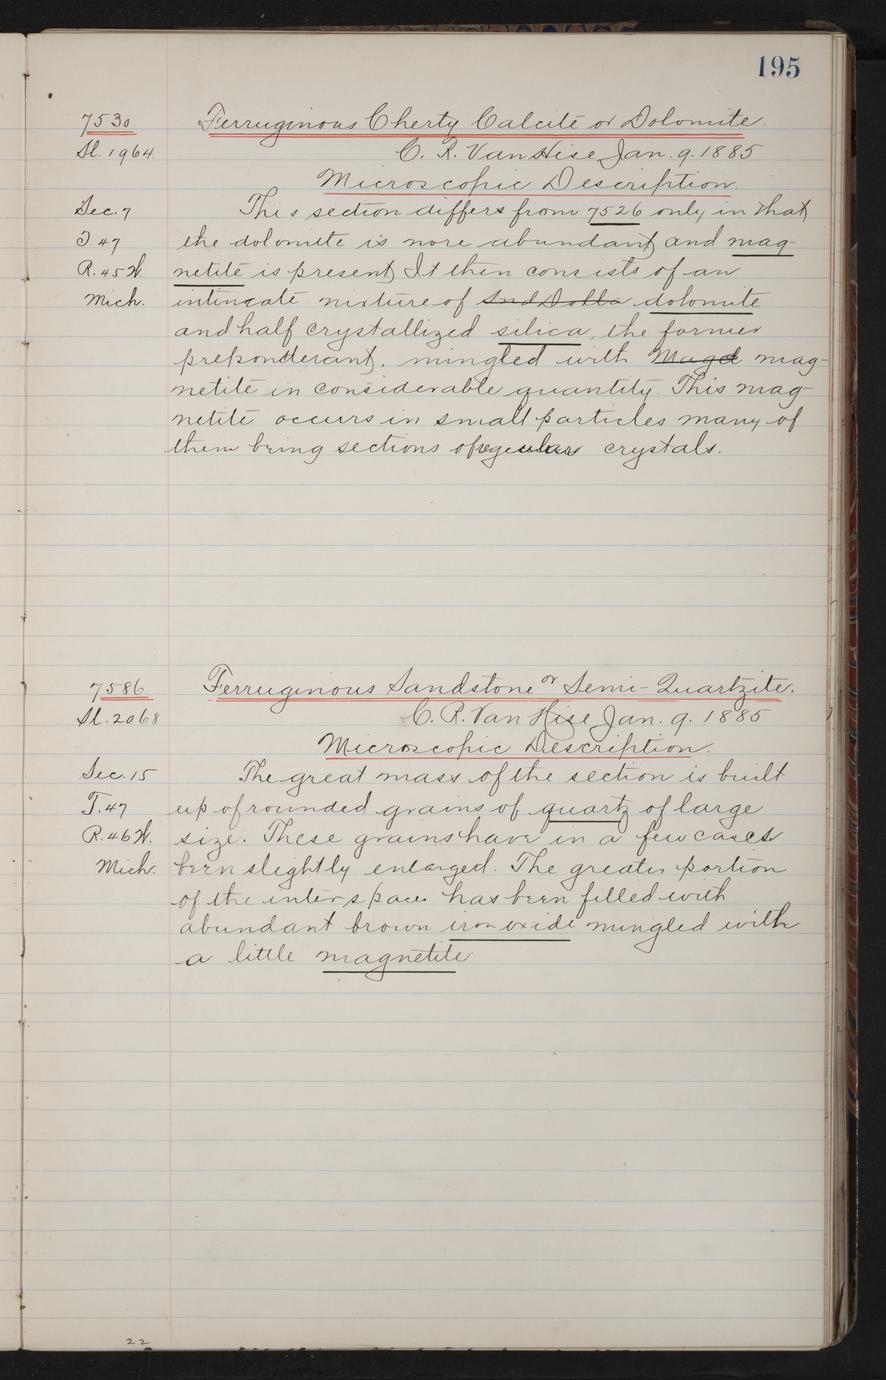 195
7530 Ferruginous Cherty Calcite or Dolomite.
Sl. 1964 C. R. Van Hise Jan. 9. 1885
Microscopic Description.
Sec. 7 This section differs from 7526 only in that
T. 47 the dolomite is more abundant, and mag-
R. 45 W. netite is present, It then consists of an
Mich. intincate mixture of dolomite
and half crystallized silica, the former
prepontterant, mingled with Maget mag-
netite in considerable quantity. This mag-
netite occurs in small particles many of
them being sections of regular crystals.
7586 Ferruginous Sandstone or Semi-Quartzite.
Sl. 2068 C. R. Van Hise Jan. 9. 1885
Microscopic Description.
Sec. 15 The great mass of the section is built
T. 47 up of rounded grains of quartz of large
R. 46 W. size. These grains have in a few cases
Mich. been slightly enlarged. The greater portion
of the interspaces has been filled with
abundant brown iron oxide mingled with
a little magnetite
22